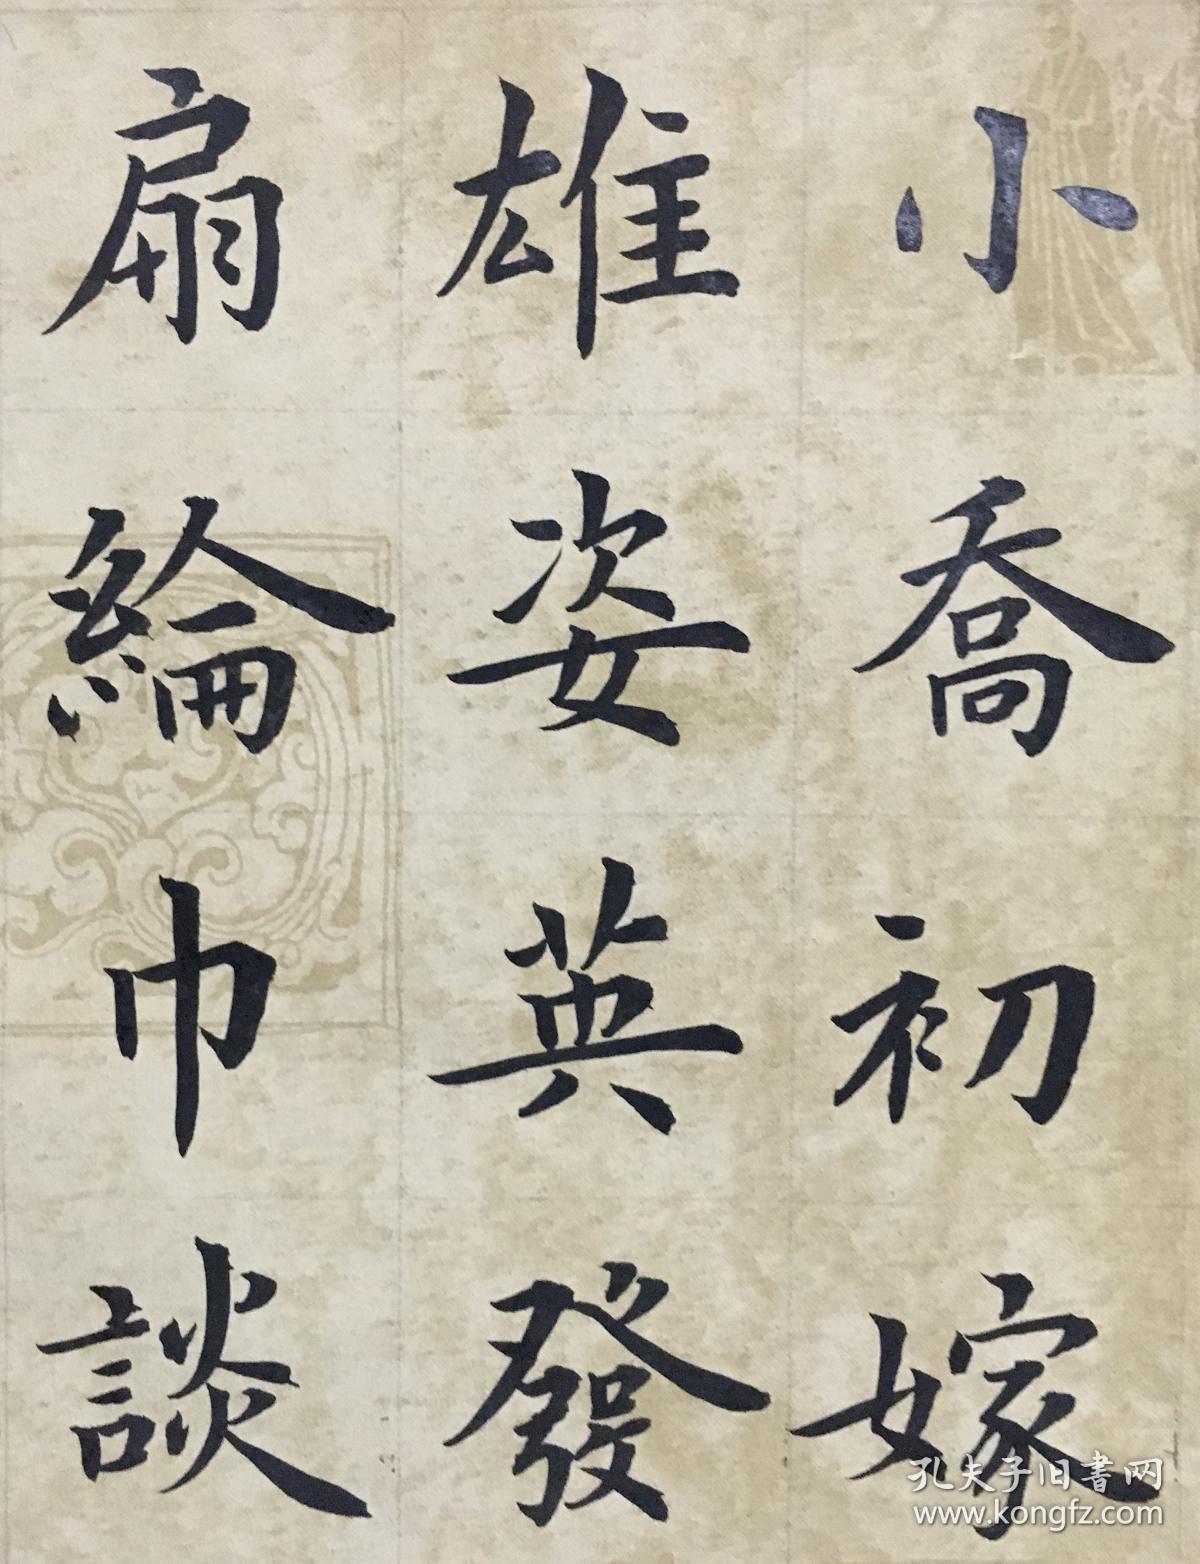 小喬初嫁
雄姿英發
扇綸巾談
孔夫子旧書网
www.kongfz.com